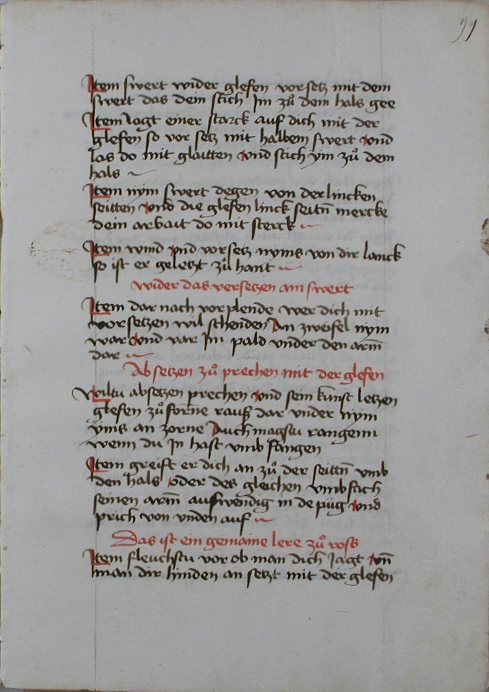 99
Item swert wider glefen vorsetz mit dem
swert das dein stich Im zů dem hals gee
Item Jagt einer starck auf dich mit der
glefen so vor setz mit halbem swert vnd
las do mit glaitten vnd stich ym zů dem
hals
Item nym swert degen von der lincken
seitten vnd die glefen linck seitñ mercke
dein arbait do mit sterck
Item wind vnd vorsetz nyms von dir lanck
so ist er geletzt zů hant
wider das versetzen am swert
Item dar nach vor plende wer dich mit
vorsetzen wil schenden An zweifel nym
war vnd var Im pald vnder den arm
dar
Absetzen zů prechen mit der glefen
Wiltu absetzen prechen vnd sein kunst letzen
glefen zů forne rausz dar vnder nym
yms an zorne Auch magstu rangenn
wenn du In hast vmb fangen
Item greift er dich an zů der seittñ vmb
den hals oder des gleichen vmb fach
seinen arm aufwendig in de püg vnd
prich von vnden auf
Das ist ein gemaine lere zů ross
Item fleuchstu vor ob man dich Jagt vñ
man dir hinden an setzt mit der glefen